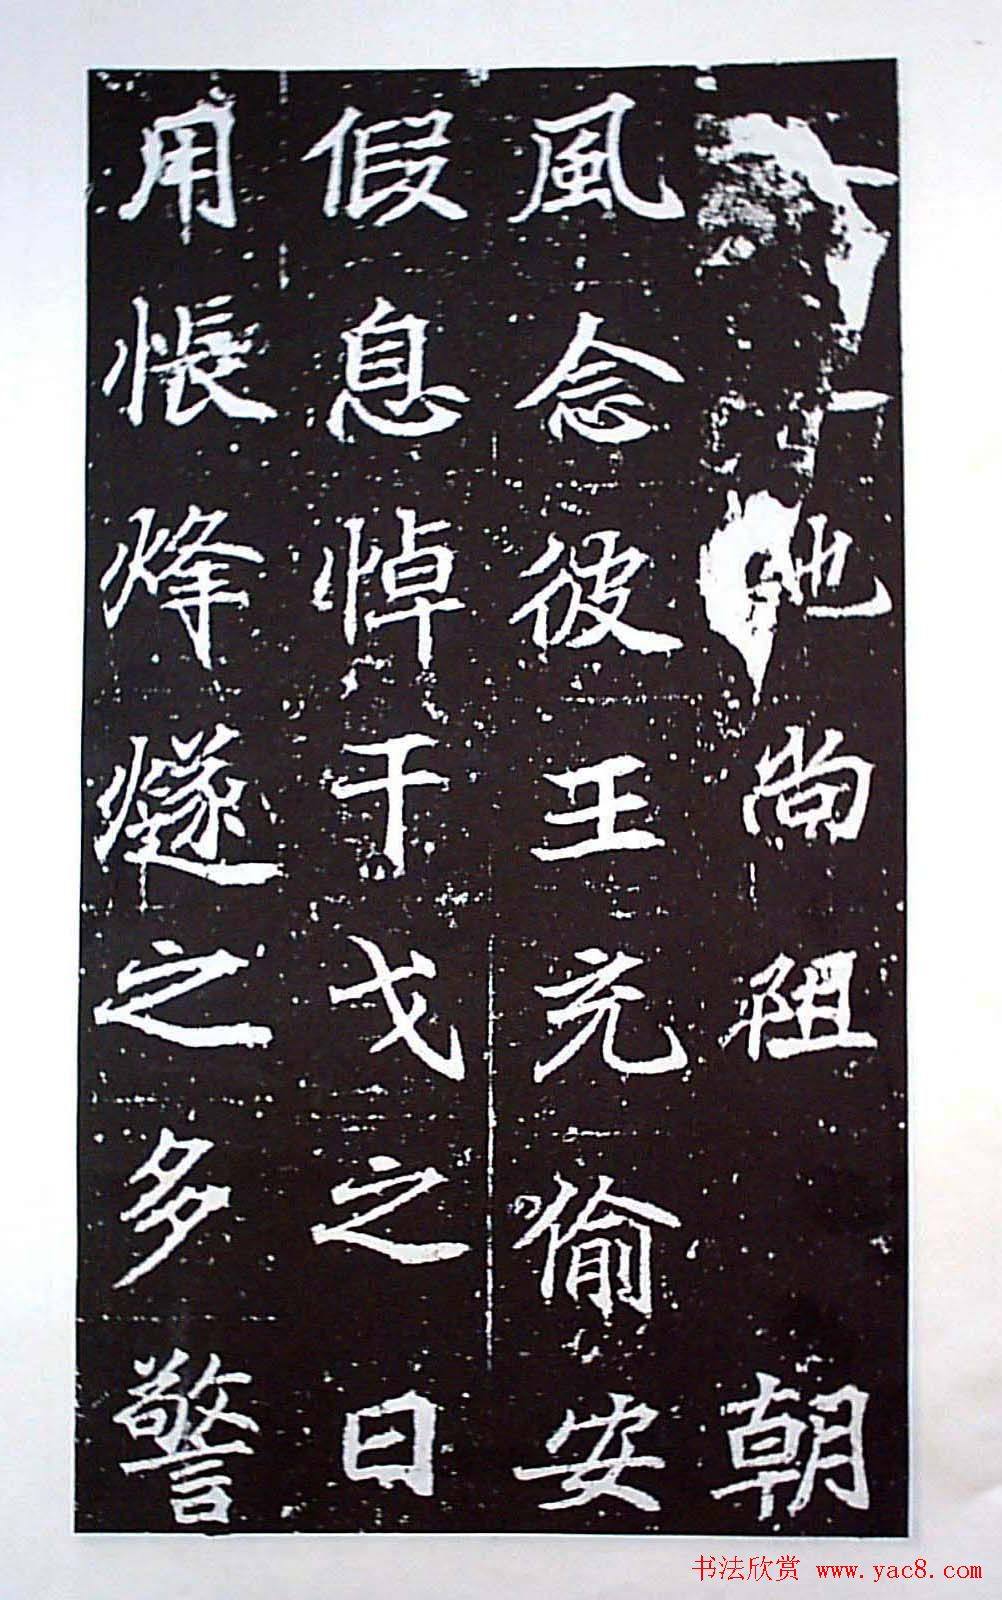 地尚阻朝
風念彼王充偷安
假息悼干戈之日
用悵烽燧之多警
书法欣赏 www.yac8.com